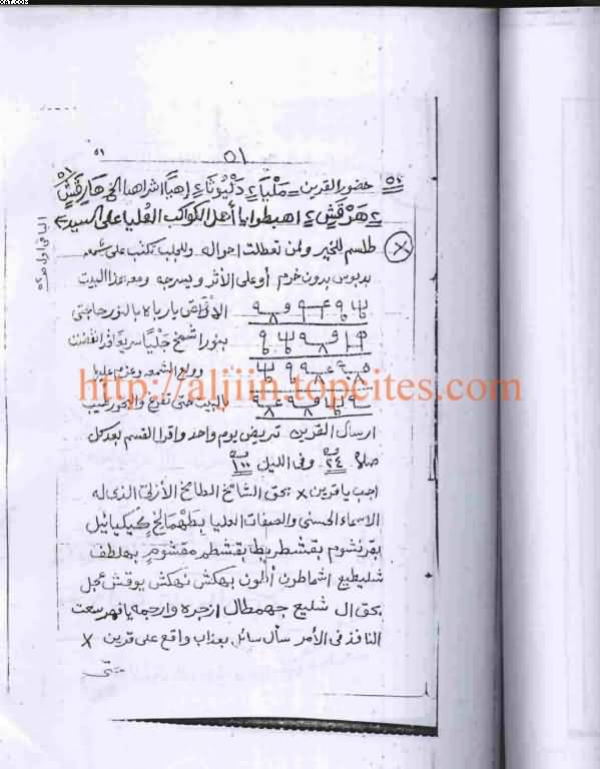 ٥١
٥٢ حضور القرين = مليا ٢ دليوثا ٢ اهيا اشراهيا الخ هارقش
٢ هرقش ٢ اهبطوا يا أهل الكواكب العليا على السيد
طلسم للخير ولمن تعطلت احواله وللجلب تكتب على شمعه
بدبوس بدون خرم أو على الأثر ويسرجه ومعه هذا البيت
يا رباه بالنور حاجتى
بنور اشمخ جليا سريعا قد انقضت
وولع الشمعه وعزم عليها
بالبيت حتى تفرغ والبخور طيب
ارسال القرين تريض يوم واحد واقرا القسم بعد كل
صلاة ٢٤ وفى الليل ١٠٠
اجب يا قرين × بحق الشامخ الطامخ الأزلى الذى له
الاسماء الحسنى والصفات العليا بطهمالخ كيكيائيل
بقرنشوم بقشطريط بقشطم مقشوم بهلطف
شليطيع اشماطرن بهكش نهكش يوقش عجل
بحق ال شليع جهمطال ازجره وارجمه يا
النافذ فى الأمر سأل سائل بعذاب واقع على قرين ×
http://aljiin.topcites.com